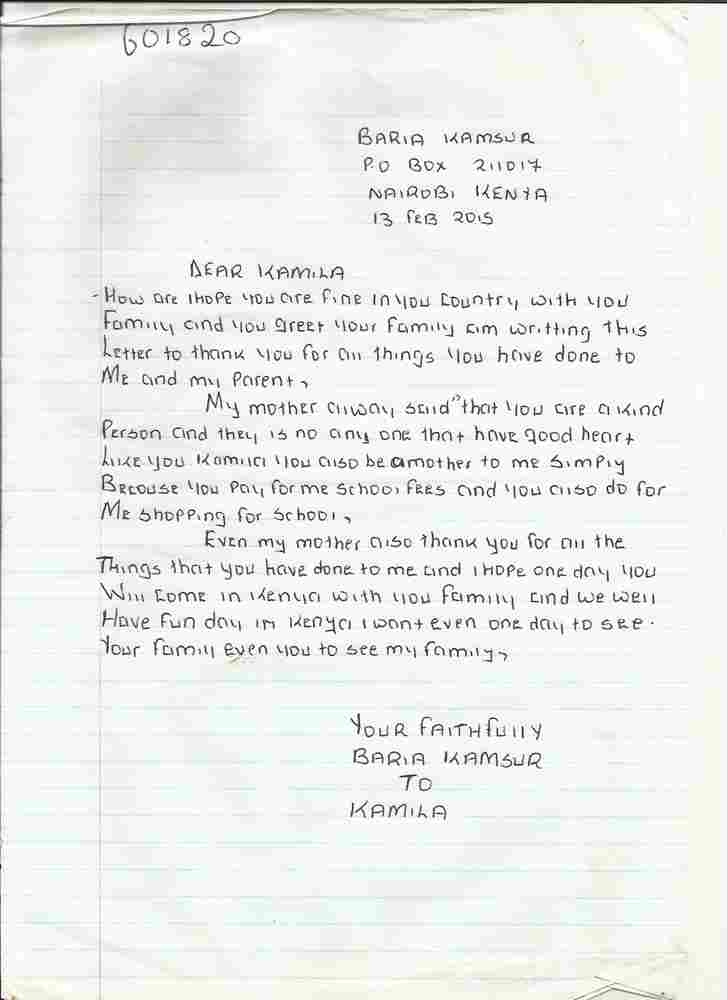 601820
BARIA KAMSUR
P.O BOX 211017
NAIROBI KENYA
13 FEB 2015
DEAR KAMILA
- How are ihope you are fine in you country with you
Family and you greet your family am writting this
Letter to thank you for all things you have done to
Me and my parent,
My mother alway said "that you are a kind
Person and they is no any one that have good heart
Like you Kamila you also be amother to me simply
Becouse you pay for me school fees and you also do for
Me shopping for school,
Even my mother also thank you for all the
Things that you have done to me and i hope one day you
Will come in Kenya with you family and we well
Have fun day in Kenya i want even one day to see.
Your family even you to see my family,
YOUR FAITHFULLY
BARIA KAMSUR
TO
KAMILA